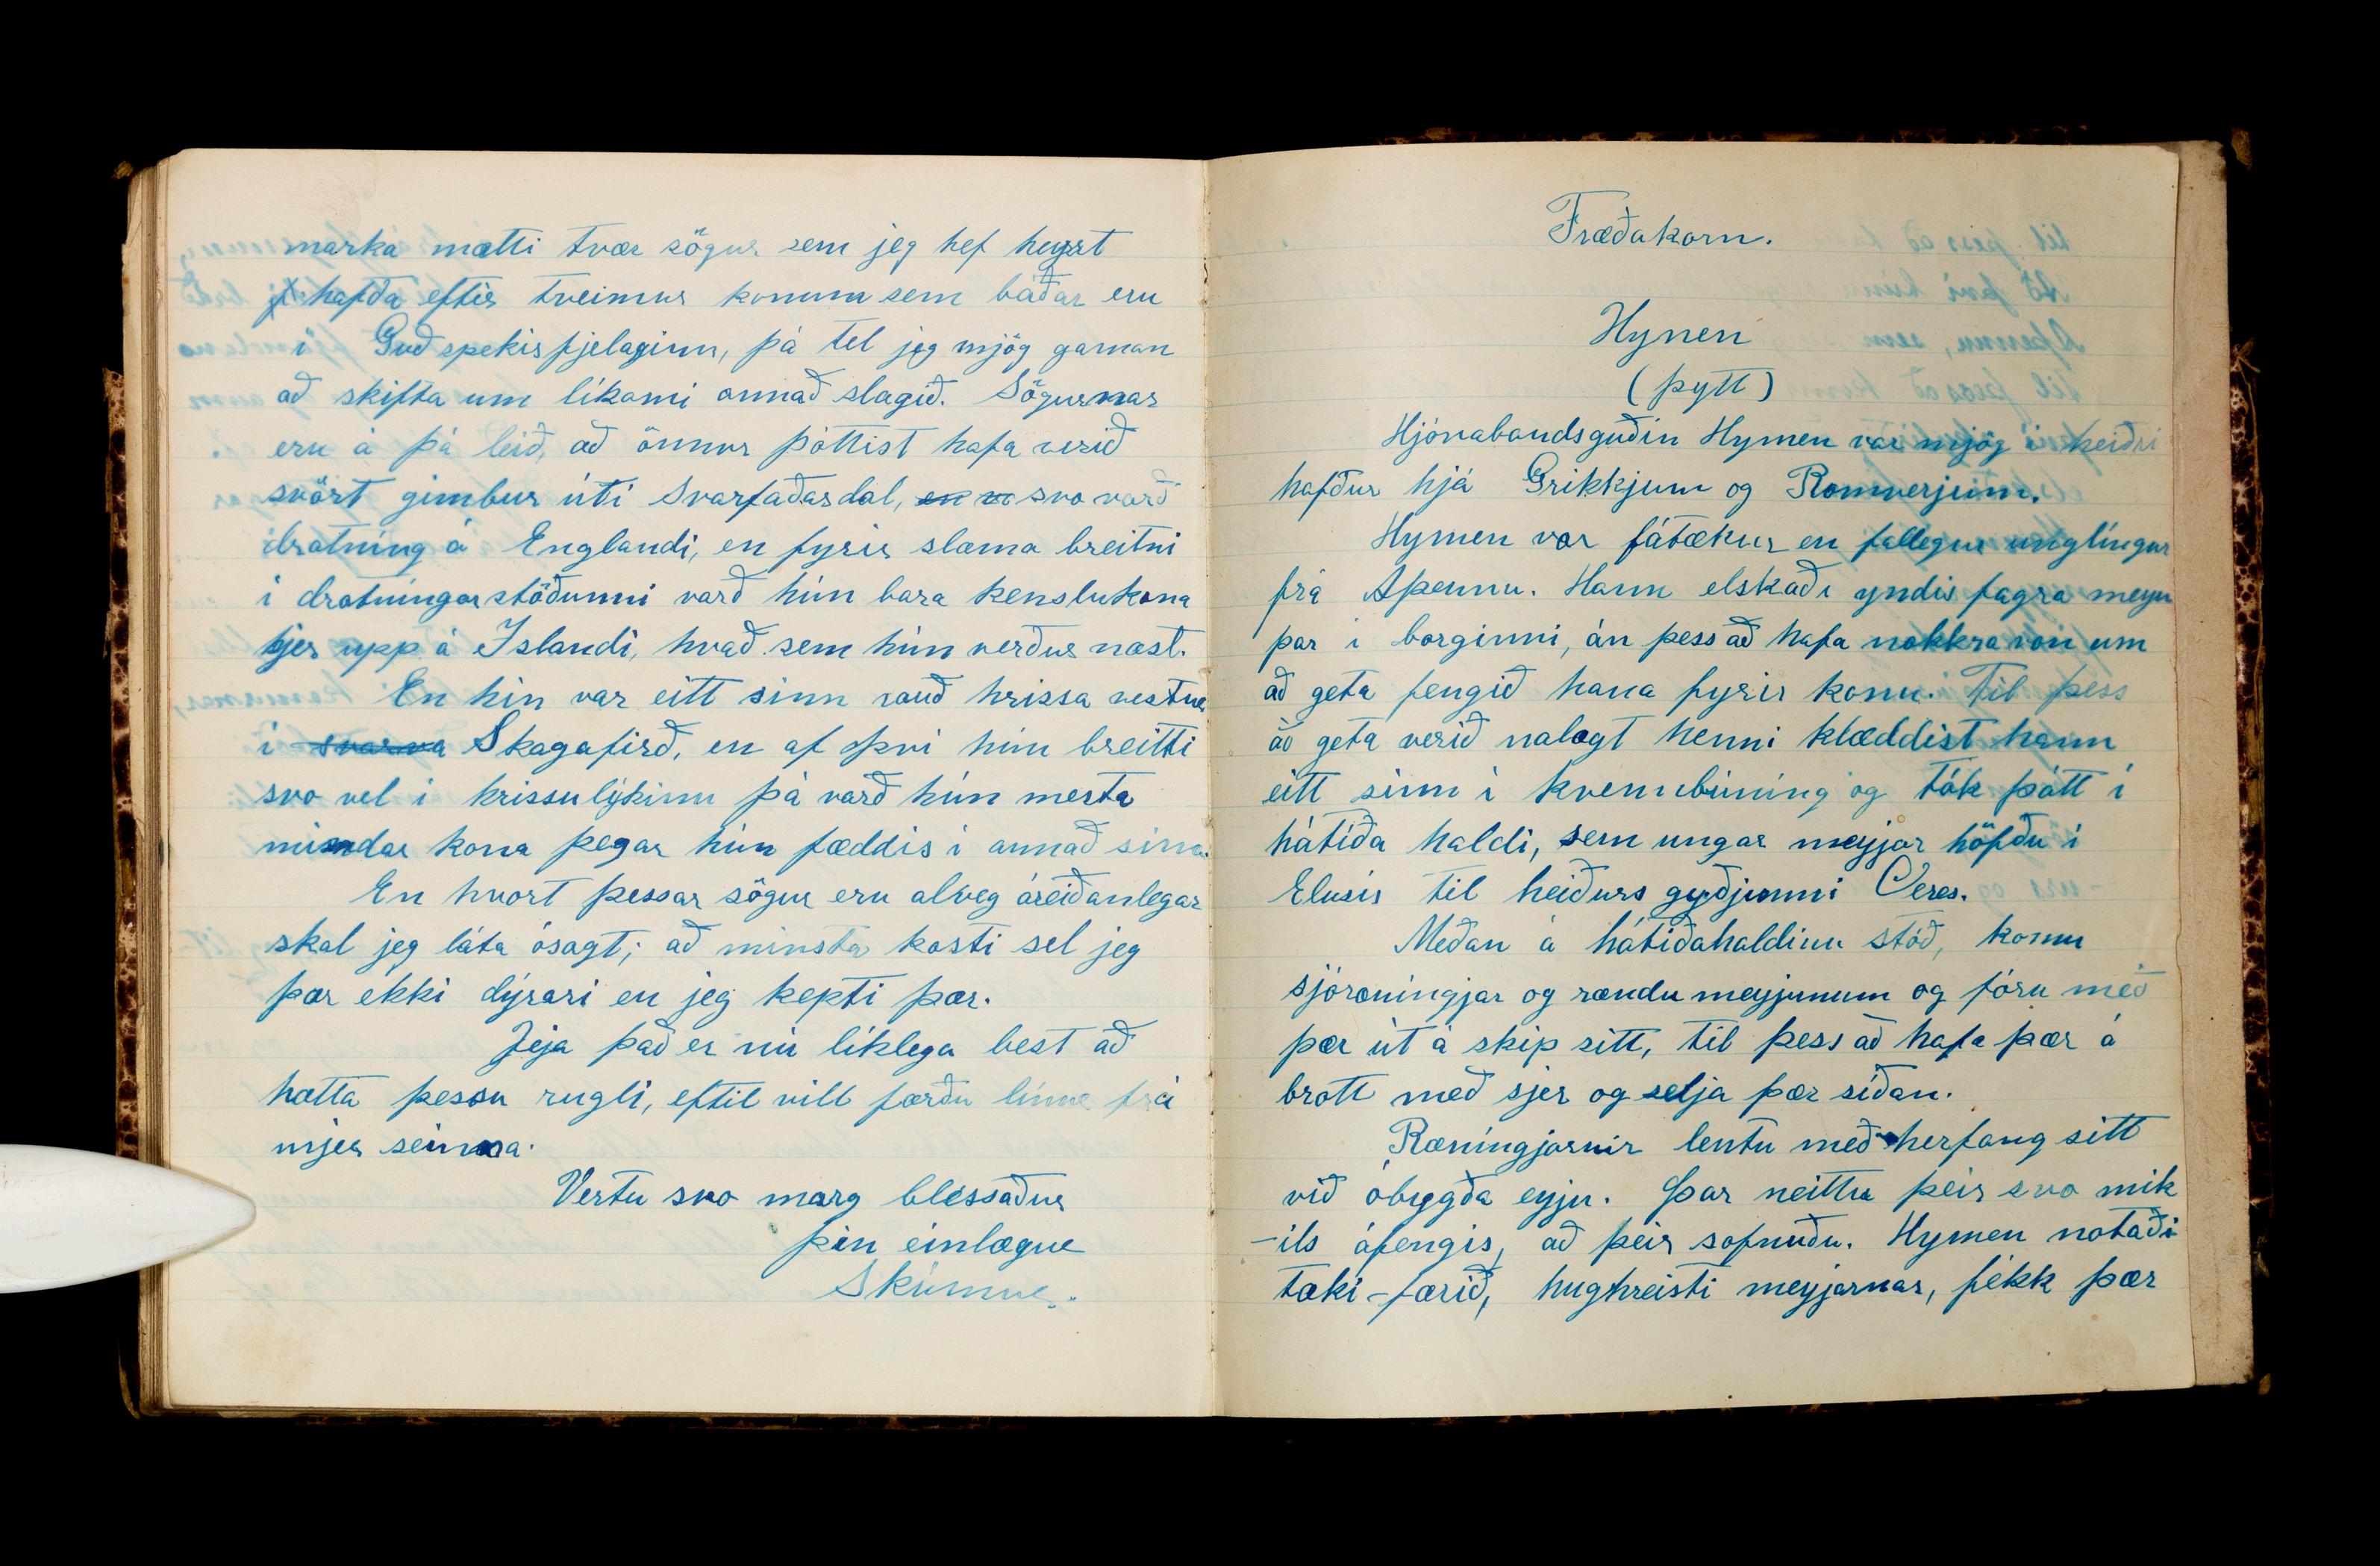 marka mætti tvær sögur sem jeg hef heyrt
hafða eftir tveimur konum sem báðar eru
í Guðspekisfjelaginu, þá tel jeg mjög gaman
að skifta um líkami annað slagið. Sögurnar
eru á þá leið, að önnur þóttist hafa verið
svört gimbur úti Svarfaðardal, en va svo varð
drotning á Englandi, en fyrir slæma breitni
í drotningarstöðunni varð hún bara kenslukona
hjer upp á Islandi, hvað sem hún verður næst.
En hin var eitt sinn rauð hrissa vestur
í svarva Skagafirð, en af því hún breitti
svo vel í hrissulýkinu þá varð hún mesta
mindar kona þegar hún fæddis í annað sinn.
En hvort þessar sögur eru alveg áreiðanlegar
skal jeg láta ósagt; að minsta kosti sel jeg
þær ekki dýrari en jeg kepti þær.
Jæja það er nú líklega best að
hætta þessu rugli, eftil vill færðu línur frá
mjer seinna.
Vertu svo marg blessaður
þin einlægur
Skúmur.
Fræðakorn.
Hynen
(þytt)
Hjónabandsguðin Hymen var mjög í heiðri
hafður hjá Grikkjum og Romverjum.
Hymen var fátækur en fallegur unglingur
frá Aþennu. Hann elskaði yndis fagra meyu
þar i borginni, án þess að hafa nokkra von um
að geta fengið hana fyrir konu. Til þess
að geta verið nálægt henni klæddist hann
eitt sinn í kvennbúning og tók þátt í
hátíða haldi, sem ungar meyjar höfðu í
Elusis til heiðurs gyðjunni Ceres.
Meðan á hátíðahaldinu stóð, komu
sjóræningjar og rændu meyjunum og fóru með
þær út á skip sitt, til þess að hafa þær á
brott með sjer og selja þær síðan.
Ræningjarnir lentu með herfang sitt
við óbyggða eyju. Þar neittu þeir svo mik
-ils áfengis, að þeir sofnuðu. Hymen notaði
tæki-færið, hughreisti meyjarnar, fékk þær